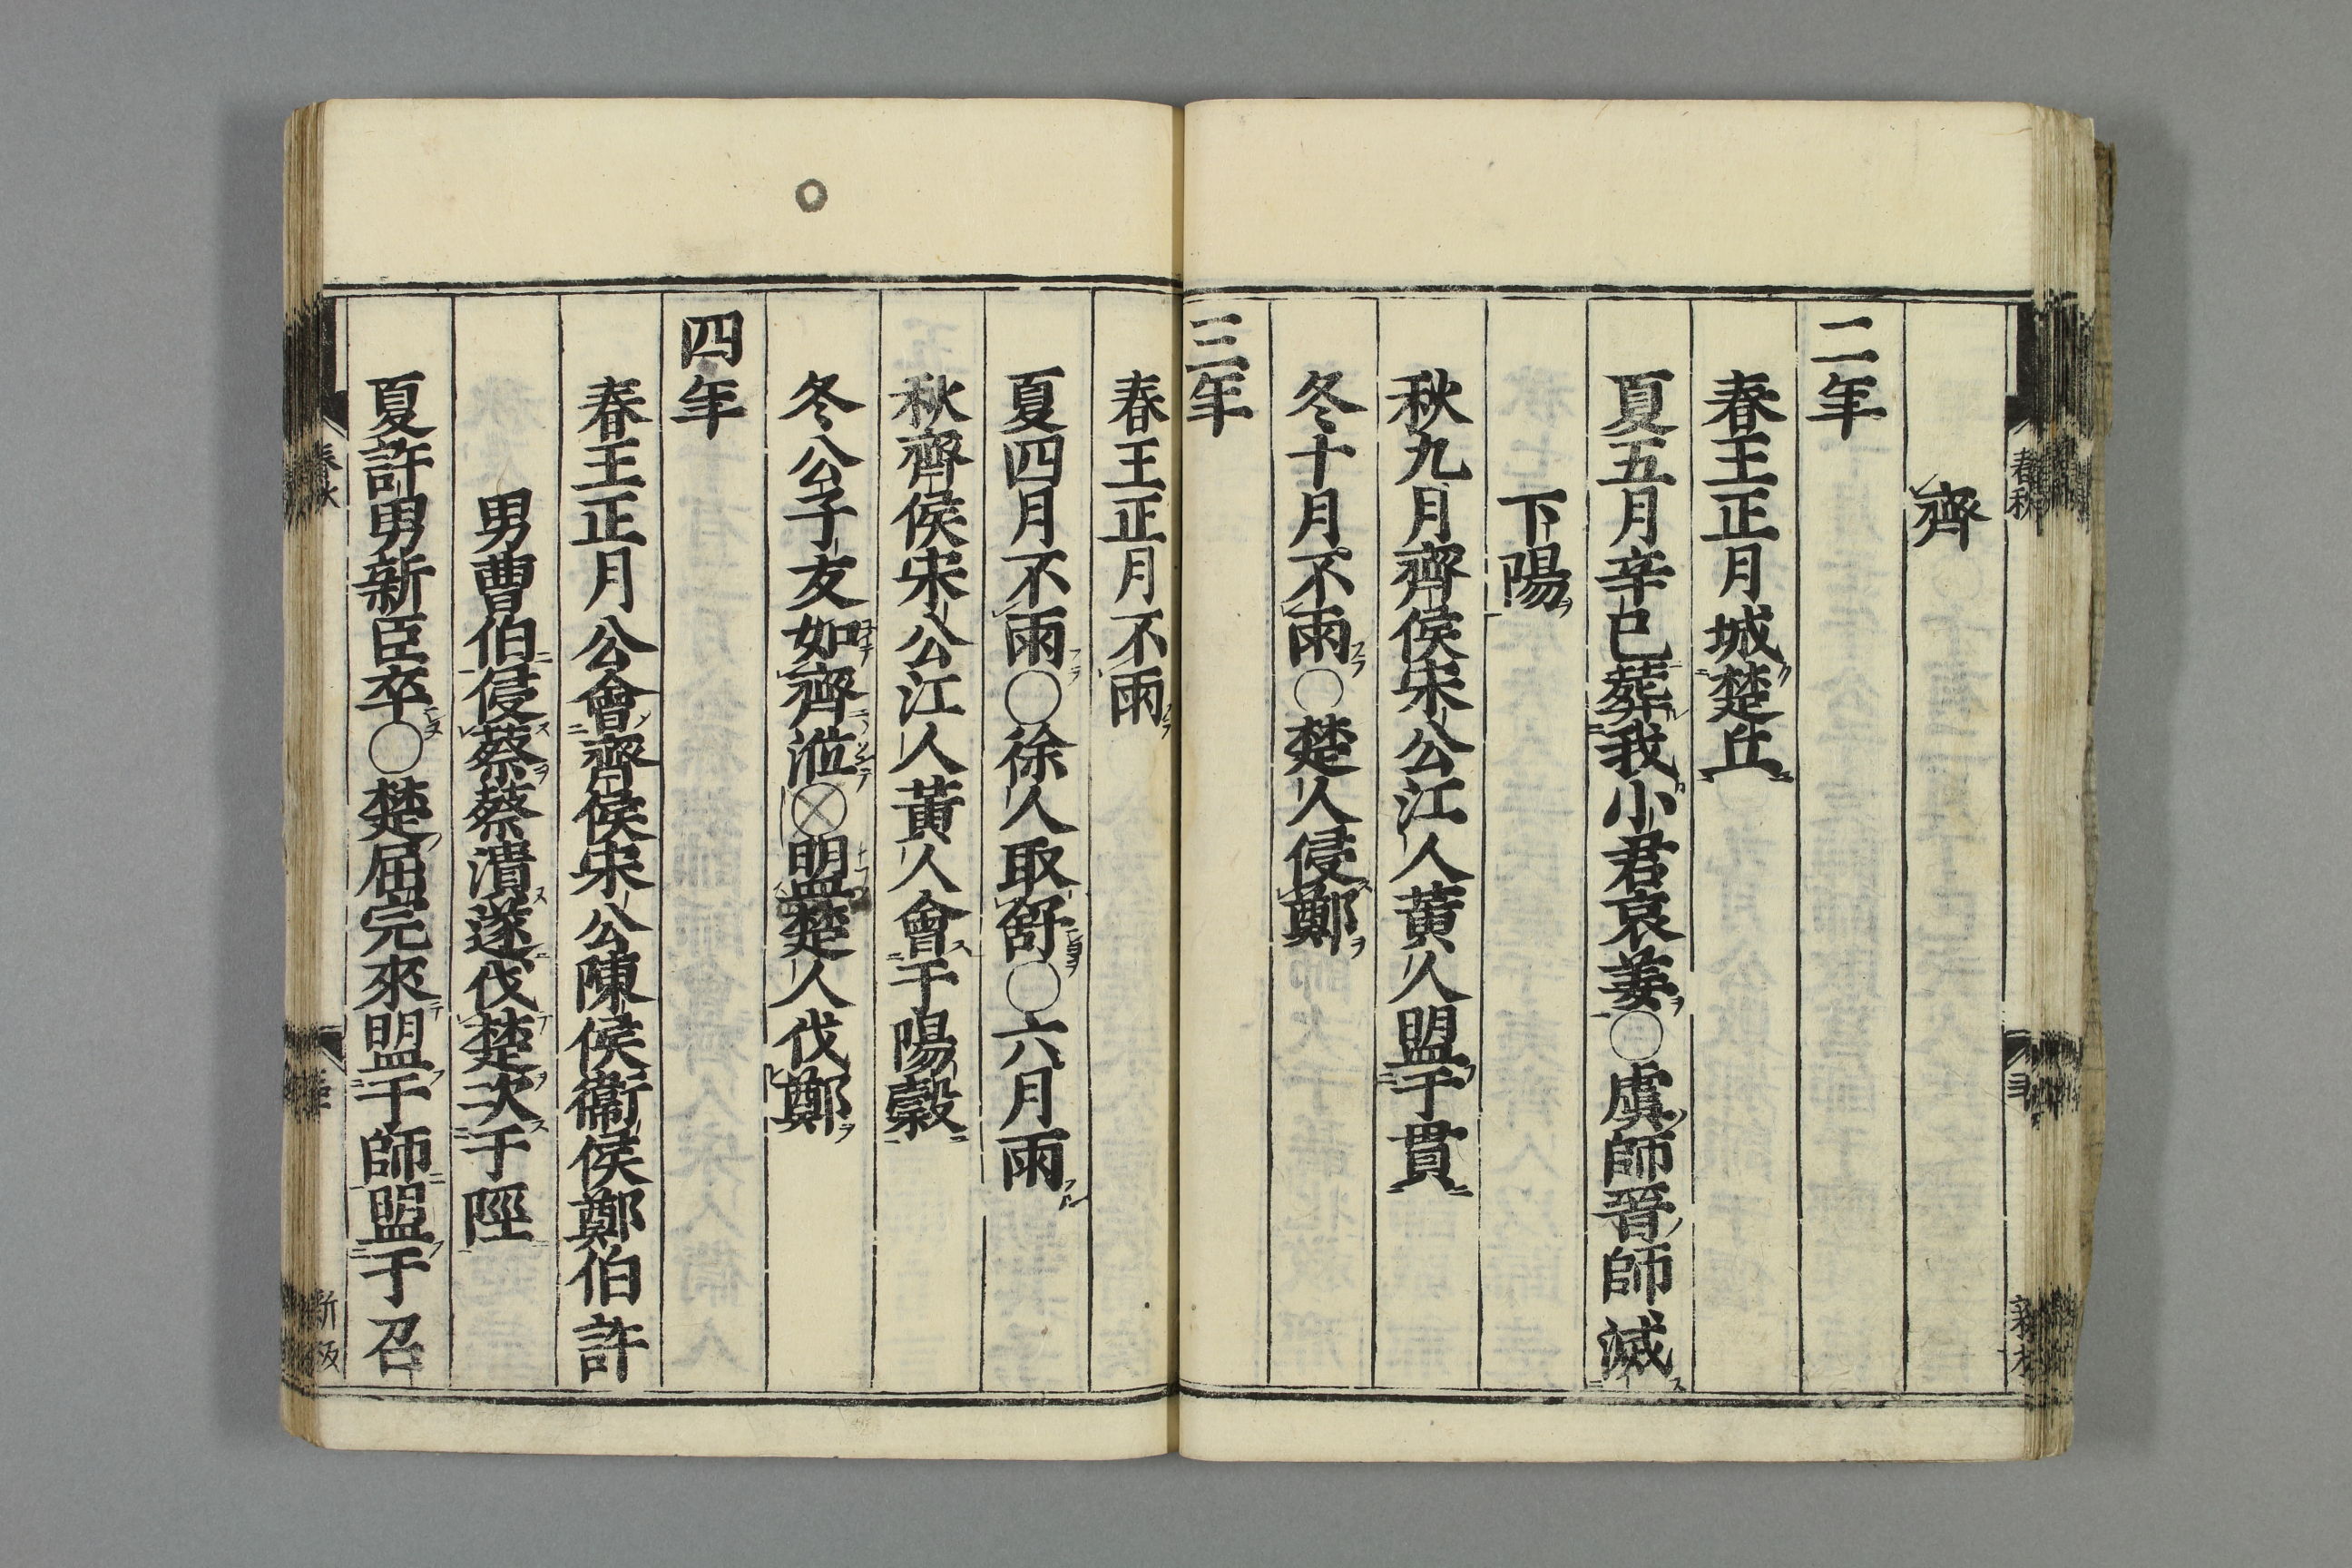 齊
二年
春王正月城楚丘
夏五月辛巳葬我小君哀姜○虞師晉師滅
下陽
秋九月齊侯宋公江人黃人盟于貫
冬十月不雨○楚人侵鄭
三年
春王正月不雨
夏四月不雨○徐人取舒○六月雨
秋齊侯宋公江人黃人會于陽穀
冬公子友如齊涖○盟楚人伐鄭
四年
春王正月公會齊侯宋公陳侯衞侯鄭伯許
男曹伯侵蔡蔡潰遂伐楚次于陘
夏許男新臣卒○楚屈完來盟于師盟于召
春秋